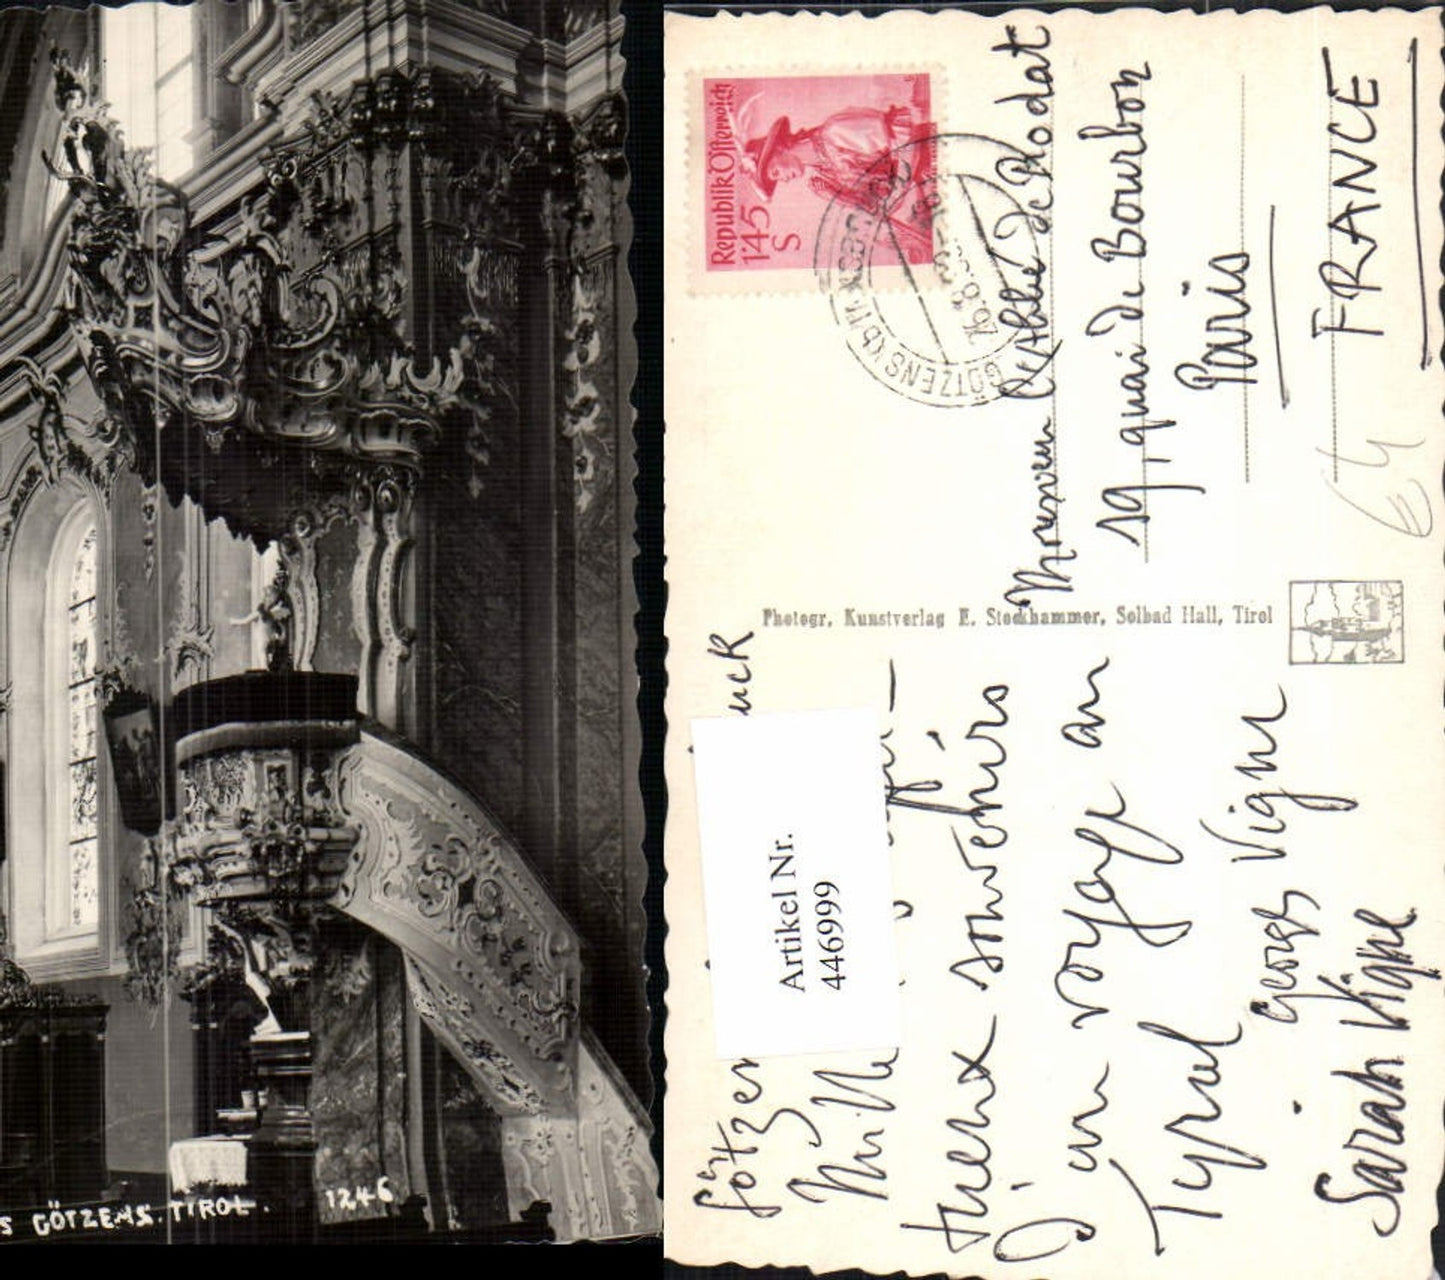 S GÖTZENS. TIROL. 1246
Republik Österreich
1'45
S
GÖTZENS
26.8.53
Monsieur l'Abbé de Rodat
19, quai de Bourbon
Paris
FRANCE
Photogr. Kunstverlag E. Stockhammer, Solbad Hall, Tirol
Artikel Nr.
4469999
Götzen uck
Mille
souvenirs
d'un voyage au
Tyrol
Georges Vigne
Sarah Vigne